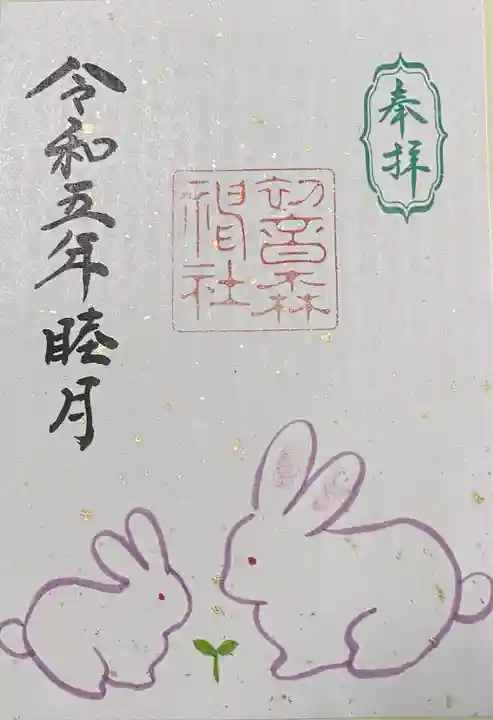 奉拝
初音森
神社
令和五年睦月